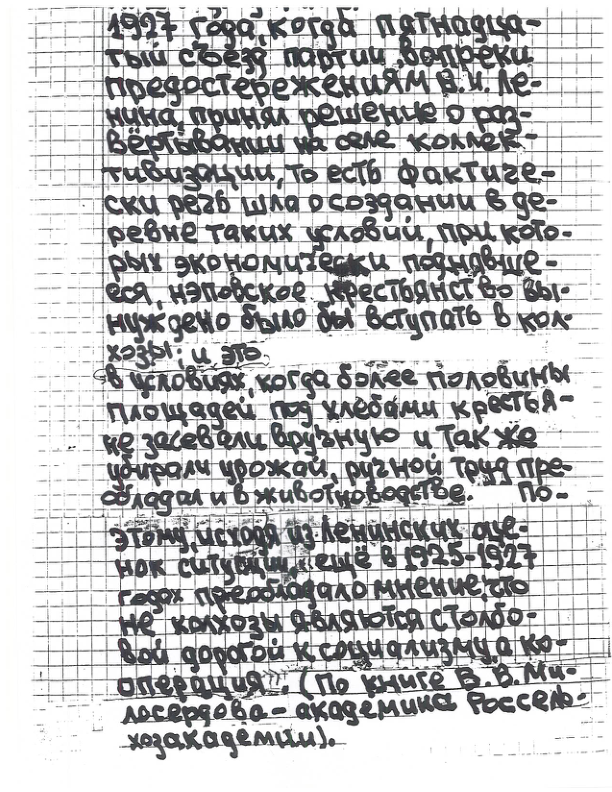 1927 года, когда пятнадца-
тый съезд партии, вопреки
предостережениям В.И. Ле-
нина, принял решение о раз-
вёртывании на селе коллек-
тивизации, то есть фактиче-
ски речь шла о создании в де-
ревне таких условий, при кото-
рых экономически поднявше-
еся, нэповское крестьянство вы-
нуждено было бы вступать в кол-
хозы, и это
в условиях, когда более половины
площадей под хлебами крестья-
не засевали вручную и так же
убирали урожай, ручной труд пре-
обладал и в животноводстве. По-
этому, исходя из Ленинских оце-
нок ситуации, ещё в 1925-1927
годах преобладало мнение, что
не колхозы являются столбо-
вой дорогой к социализму, а ко-
операция. (По книге В.В. Ми-
лосердова - академика Россель-
хозакадемии).